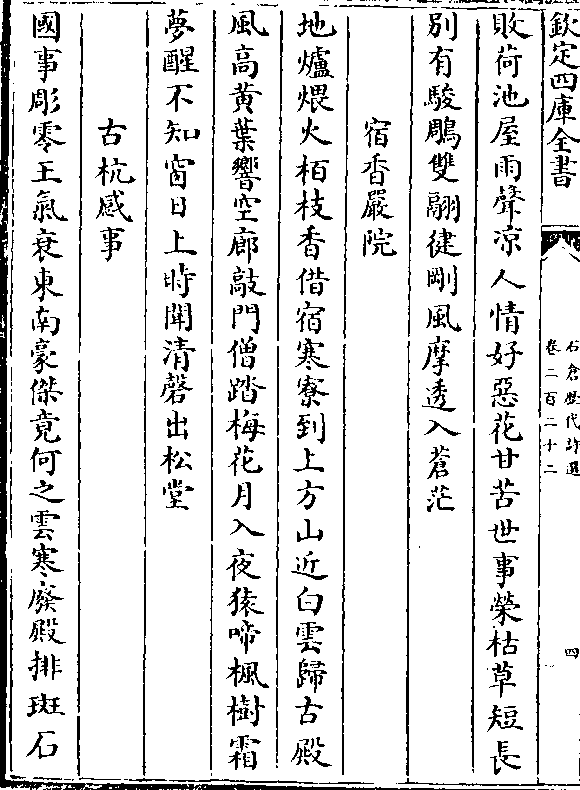 欽定四庫全書
石倉歷代詩選
卷二百二十二
四
敗荷池屋雨聲凉人情好惡花甘苦世事榮枯草短長
別有駿鵰雙翮健剛風摩透入蒼茫
宿香嚴院
地爐煨火栢枝香借宿寒寮到上方山近白雲歸古殿
風高黄葉響空廊敲門僧踏梅花月入夜猿啼楓樹霜
夢醒不知窗日上時聞清磬出松堂
古杭感事
國事彫零王氣衰東南豪傑竟何之雲寒廢殿排斑石